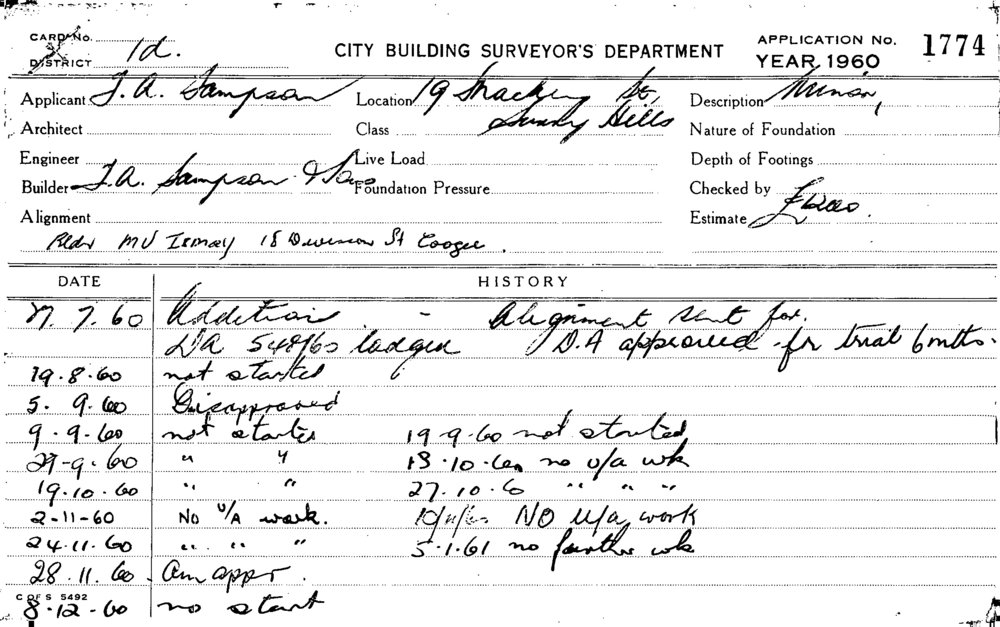 CARD No.
DISTRICT 1d. CITY BUILDING SURVEYOR'S DEPARTMENT APPLICATION No. 1774
YEAR 1960
Applicant J.A. Sampson Location 19 St, Description Minor,
Surry Hills
Architect Class Nature of Foundation
Engineer Live Load Depth of Footings
Builder J.A. Sampson & Sons Foundation Pressure Checked by
Alignment Estimate
18 St Coogee.
DATE HISTORY
7.60 Addition - Alignment sent for.
DA 548/60 lodged D.A approved for trial 6 mths.
19.8.60 not started
5. 9.60 Disapproved
9-9-60 not started 19-9-60 not started
29-9-60 " " 13.10.60 no u/a wk
19.10.60 " " 27.10.60 " " "
2-11-60 NO U/A work. 10/11/60 NO U/A work
24.11.60 " " " 5.1.61 no further wk
28.11.60 Am appr.
C OF S 5492
8.12-60 no start